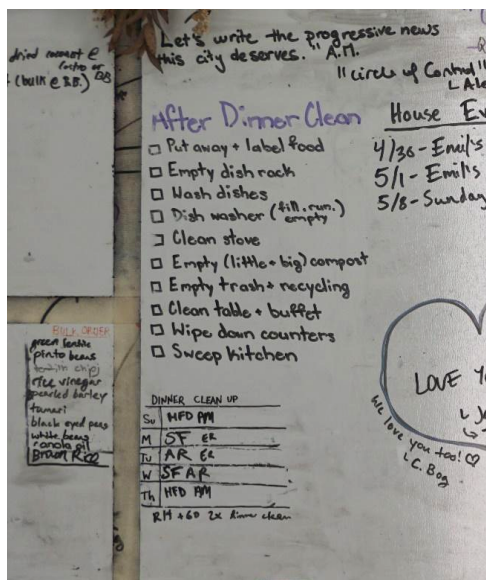 Let's write the progressive news
this city deserves." A.M.
"circle of Control"
dried
(bulk @ B.B.)
After Dinner Clean
□ Put away + label food
□ Empty dish rack
□ Wash dishes
□ Dish washer (fill, run, empty)
□ Clean stove
□ Empty (little + big) compost
□ Empty trash + recycling
□ Clean table + buffet
□ Wipe down counters
□ Sweep kitchen
House Ev
4/30 - Emil's
5/1 - Emil's
5/8 - Sunday
BULK ORDER
green lentils
pinto beans
rice vinegar
pearled barley
tamari
black eyed peas
white beans
canola oil
Brown Rice
DINNER CLEAN UP
Su MFD AM
M SF ER
Tu AR ER
W SF AR
Th MFD AM
RM + GD 2x dinner clean
LOVE Yo
we love you too! ♡
L C. Bog